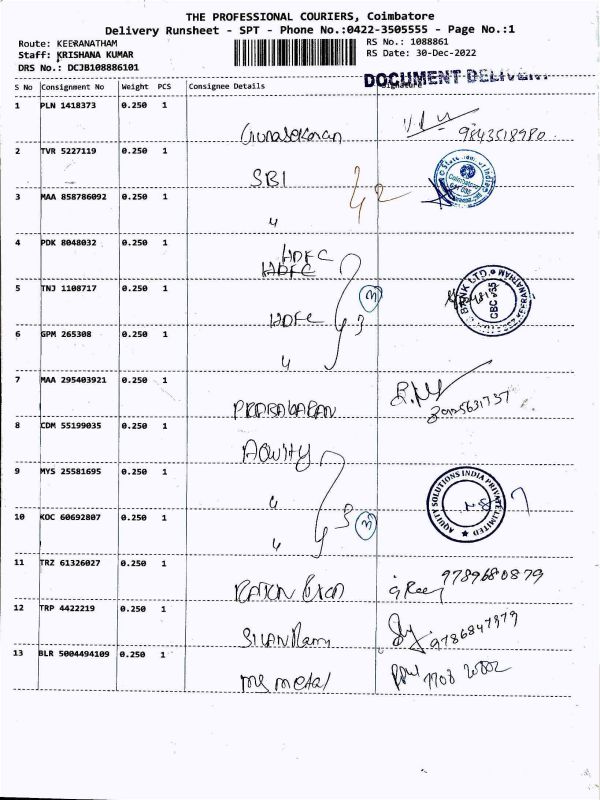 THE PROFESSIONAL COURIERS, Coimbatore
Delivery Runsheet - SPT - Phone No.:0422-3505555 - Page No.:1
Route: KEERANATHAM
RS No.: 1088861
Staff: KRISHANA KUMAR
RS Date: 30-Dec-2022
DRS No.: DCJB108886101
DOCUMENT DELIVERY
S No Consignment No Weight PCS Consignee Details Signature
1 PLN 1418373 0.250 1
Gunasekaran 9843518980
2 TVR 5227119 0.250 1
SBI
3 MAA 858786092 0.250 1
2
4 PDK 8048032 0.250 1
HDFC
HDFC
5 TNJ 1108717 0.250 1
3
BANK LTD. KEERANATHAM
CBC
HDFC 3
6 GPM 265308 0.250 1
7 MAA 295403921 0.250 1
PRABAKARAN
8 CDM 55199035 0.250 1
AQUITY
9 MYS 25581695 0.250 1
AQUITY SOLUTIONS INDIA PRIVATE LIMITED
10 KOC 60692807 0.250 1
3 3
11 TRZ 61326027 0.250 1
9789680879
12 TRP 4422219 0.250 1
9786847979
13 BLR 5004494109 0.250 1
ms metal